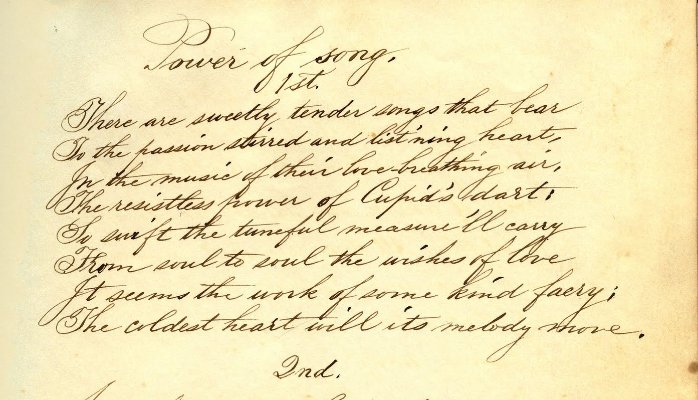 Power of song.
1st.
There are sweetly tender songs that bear
To the passion stirred and list'ning heart,
In the music of their love-breathing air,
The resistless power of Cupid's dart;
So swift the tuneful measure'll carry
From soul to soul the wishes of love
It seems the work of some kind faery;
The coldest heart will its melody move.
2nd.